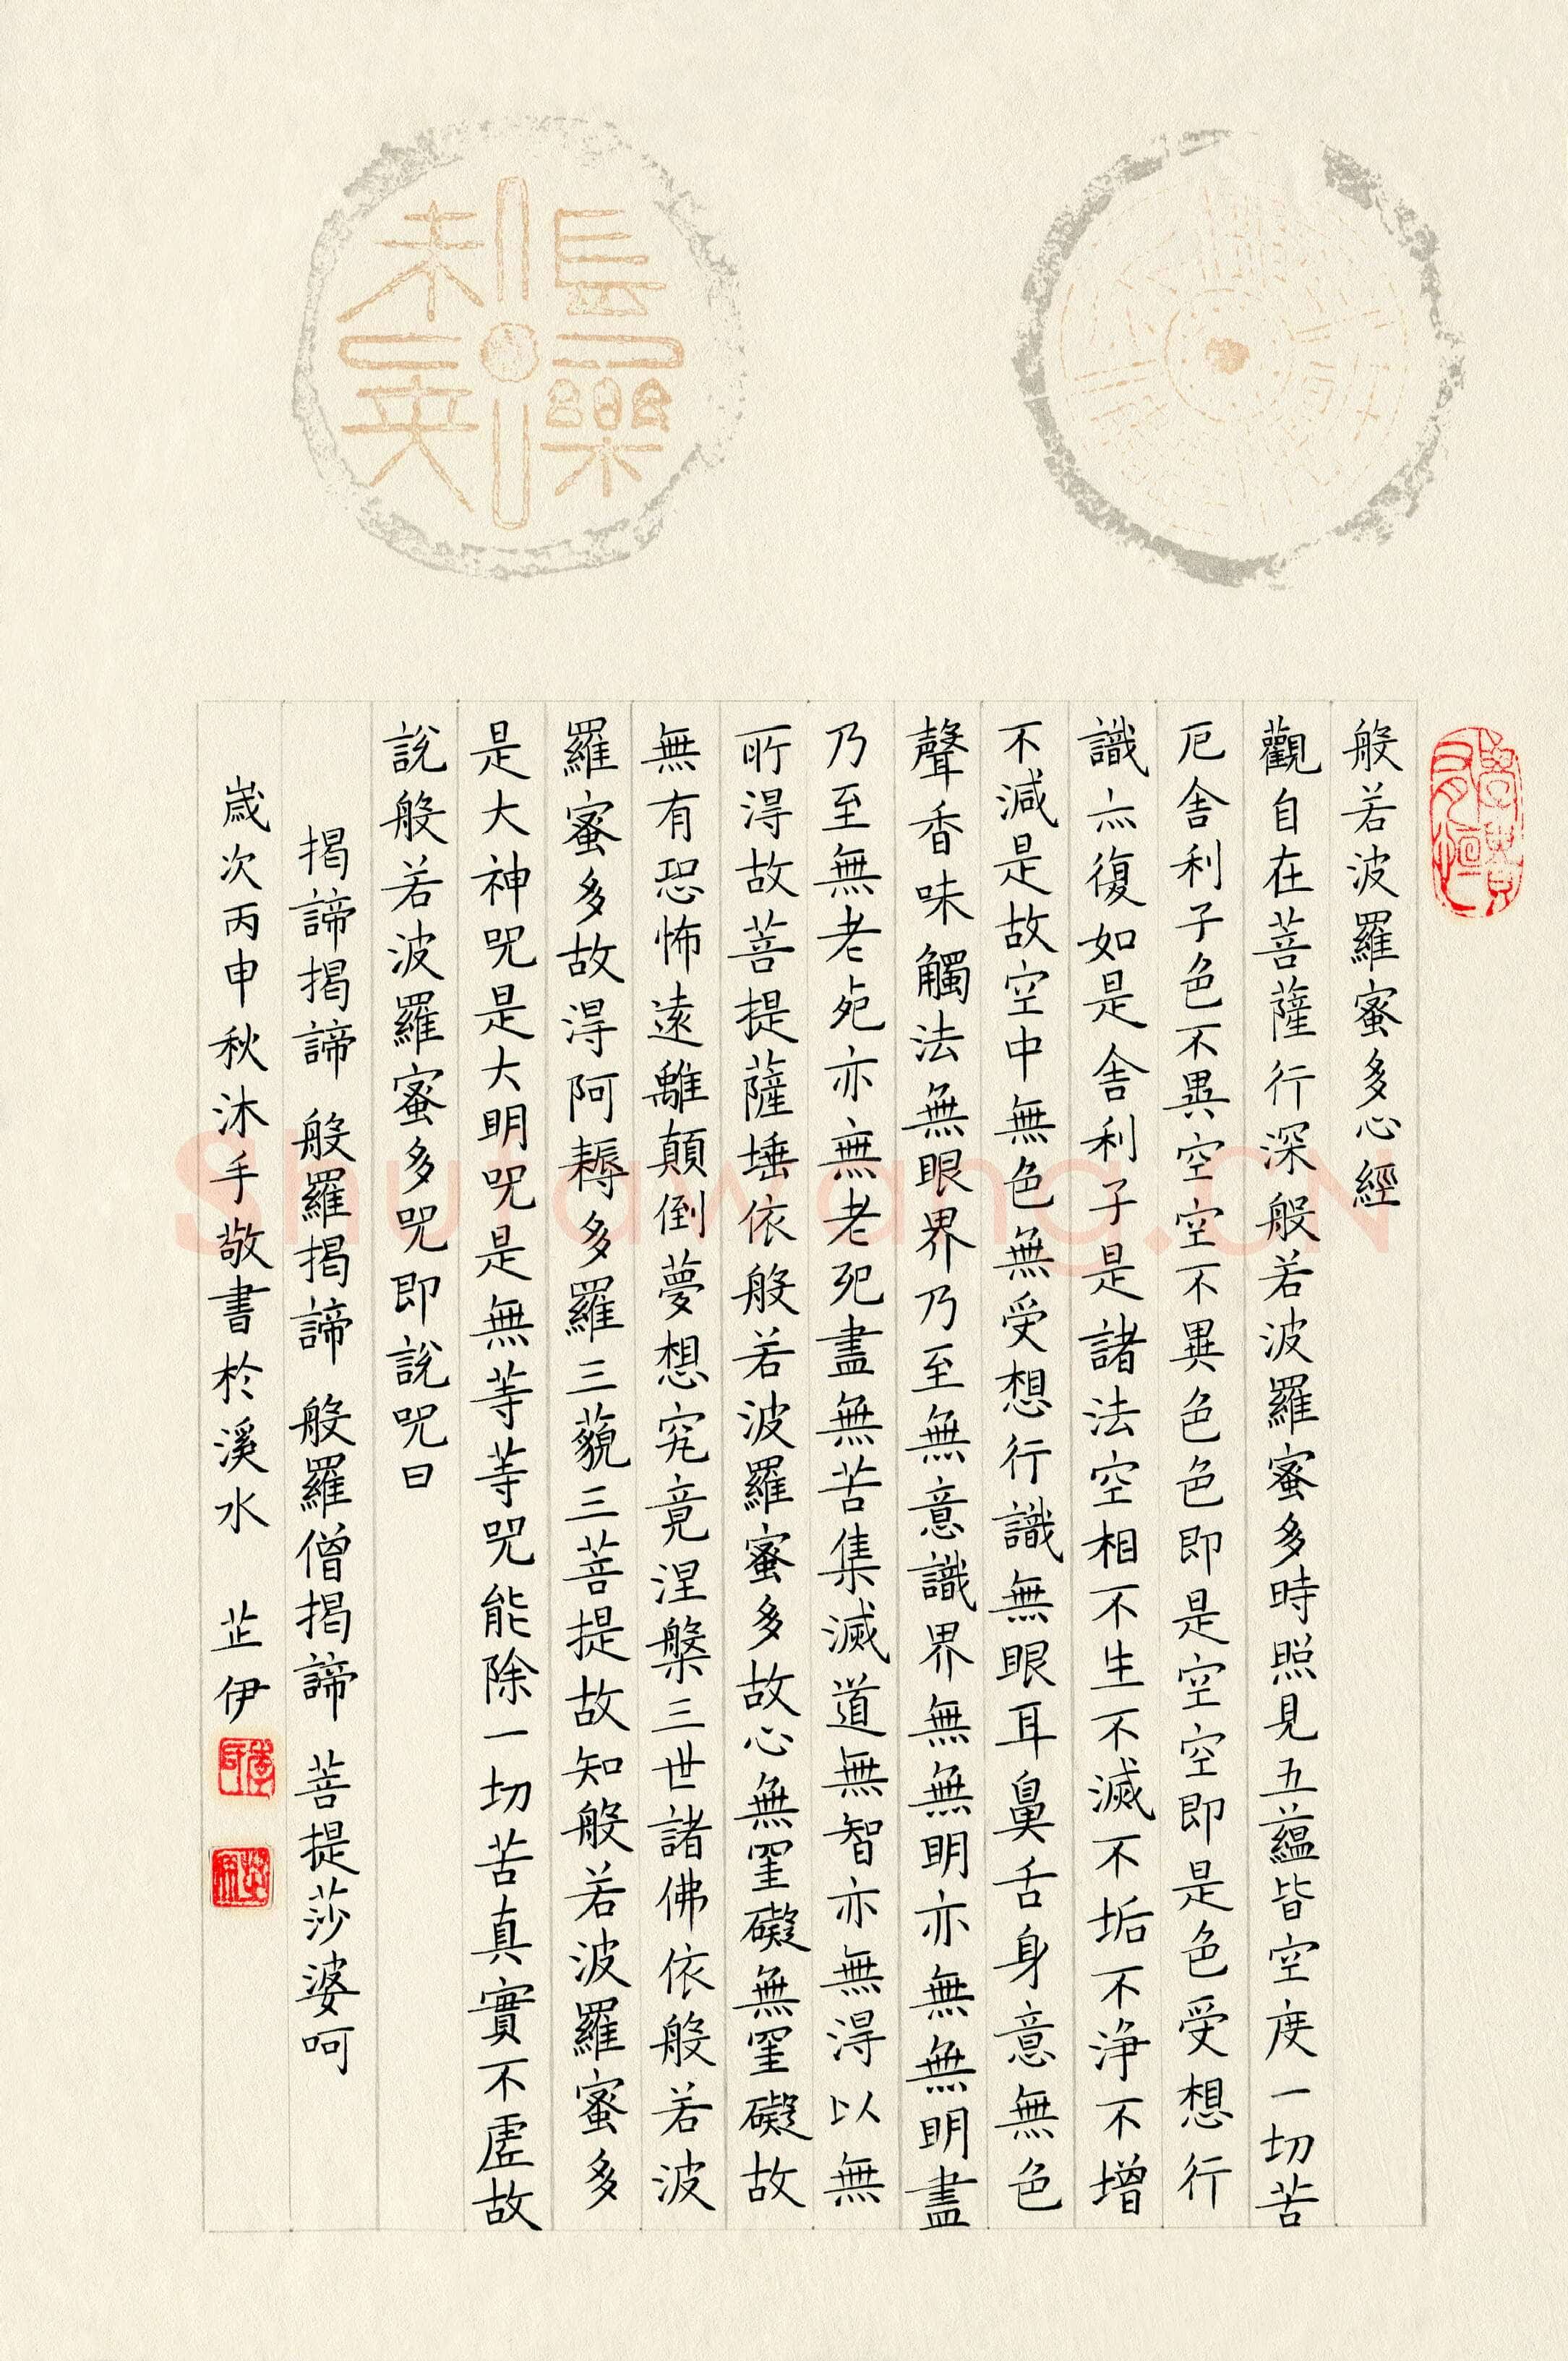 長樂未央
學貴有恒
般若波羅蜜多心經
觀自在菩薩行深般若波羅蜜多時照見五蘊皆空度一切苦
厄舍利子色不異空空不異色色即是空空即是色受想行
識亦復如是舍利子是諸法空相不生不滅不垢不淨不增
不減是故空中無色無受想行識無眼耳鼻舌身意無色
聲香味觸法無眼界乃至無意識界無無明亦無無明盡
乃至無老死亦無老死盡無苦集滅道無智亦無得以無
所得故菩提薩埵依般若波羅蜜多故心無罣礙無罣礙故
無有恐怖遠離顛倒夢想究竟涅槃三世諸佛依般若波
羅蜜多故得阿耨多羅三藐三菩提故知般若波羅蜜多
是大神咒是大明咒是無等等咒能除一切苦真實不虛故
說般若波羅蜜多咒即說咒曰
揭諦揭諦 般羅揭諦 般羅僧揭諦 菩提莎婆呵
歲次丙申秋沐手敬書於溪水 芷伊
Shufawang.CN